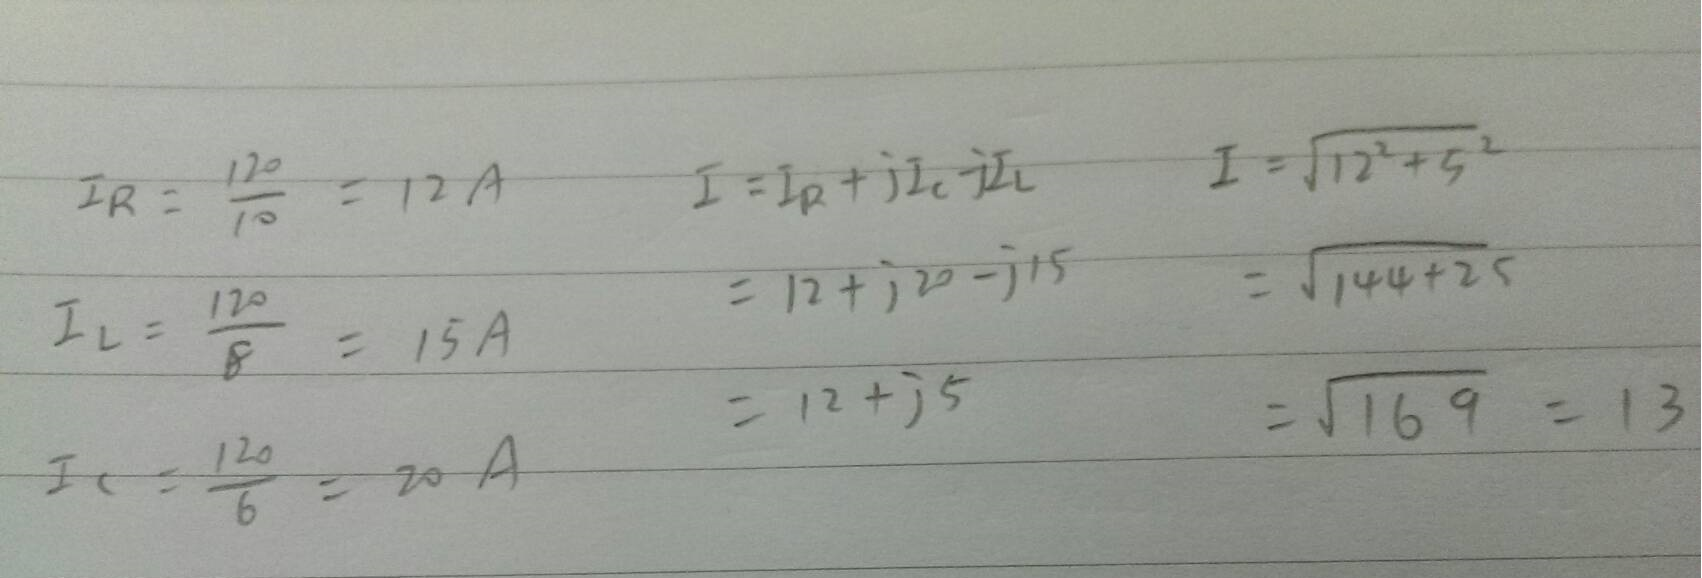 I_R = 120/10 = 12 A
I_L = 120/8 = 15 A
I_C = 120/6 = 20 A
I = I_R + jI_C - jI_L
= 12 + j20 - j15
= 12 + j5
I = √(12² + 5²)
= √(144 + 25)
= √169 = 13